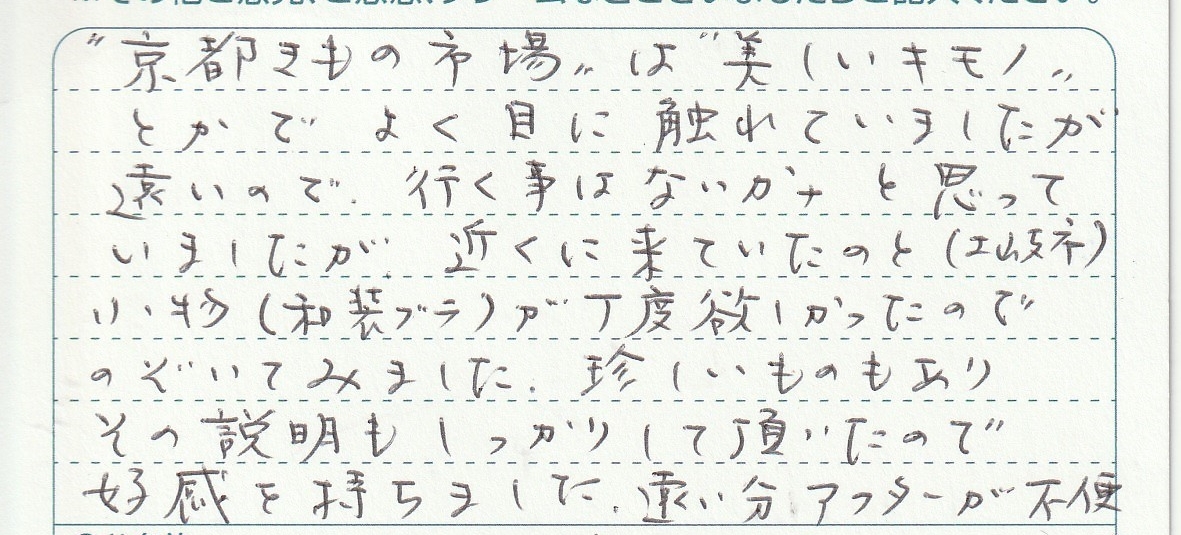 "京都きもの市場〟は"美しいキモノ〟
とかで よく目に触れていましたが
遠いので、行く事はないかナと思って
いましたが、近くに来ていたのと(土岐市)
小物(和装ブラ)が丁度欲しかったので
のぞいてみました。珍しいものもあり
その説明もしっかりして頂いたので
好感を持ちました。遠い分アフターが不便